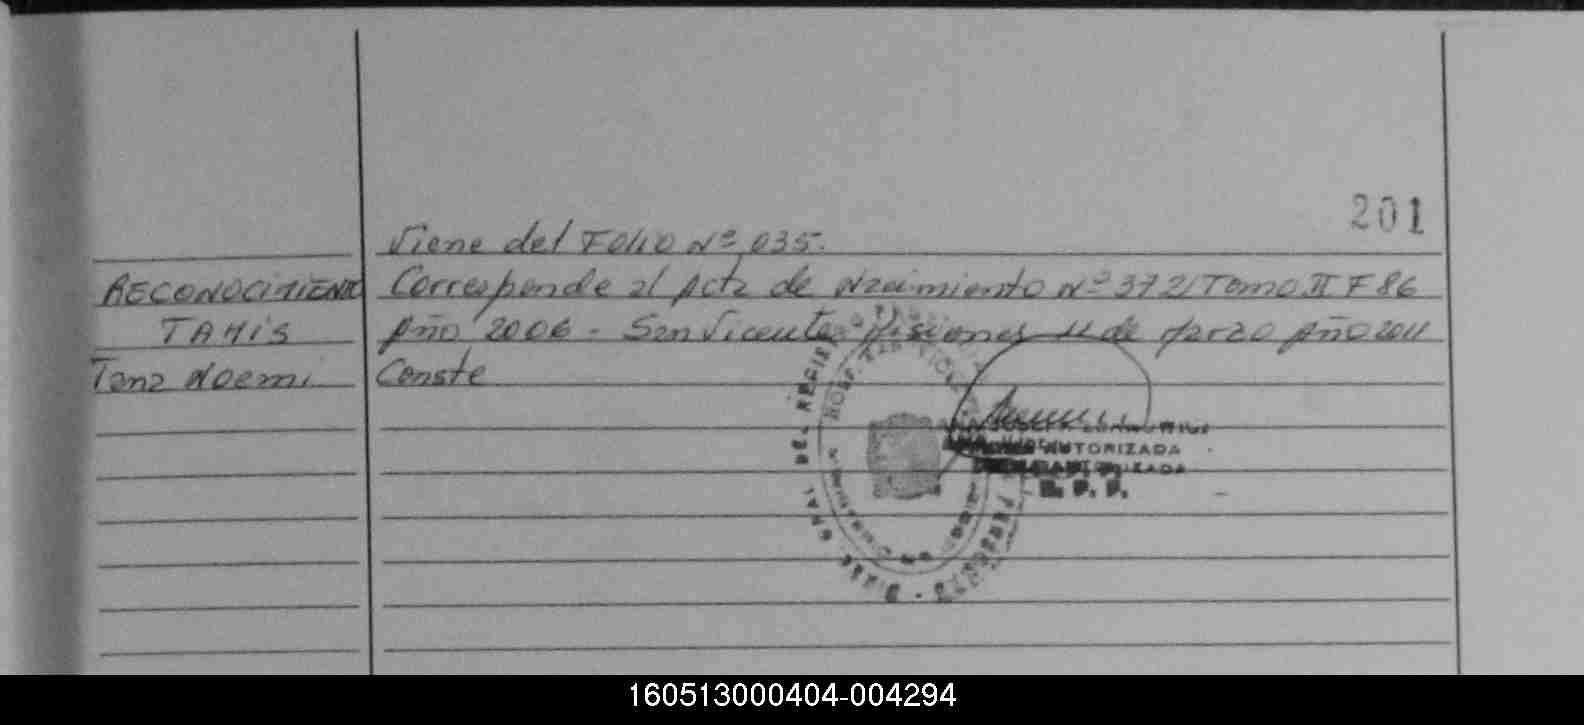 201
Viene del Folio Nº 035.
RECONOCIMIENTO Corresponde al Acta de Nacimiento Nº 372 Tomo II F 86
TAHIS Año 2006 - San Vicente Misiones 11 de Marzo Año 2011
Tana Noemi Conste
DEL REGIS
HOSP.
AUTORIZADA
160513000404-004294